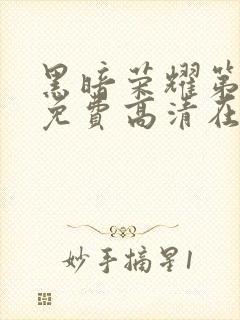 黑暗荣耀第
免费高清在
妙手摘星1